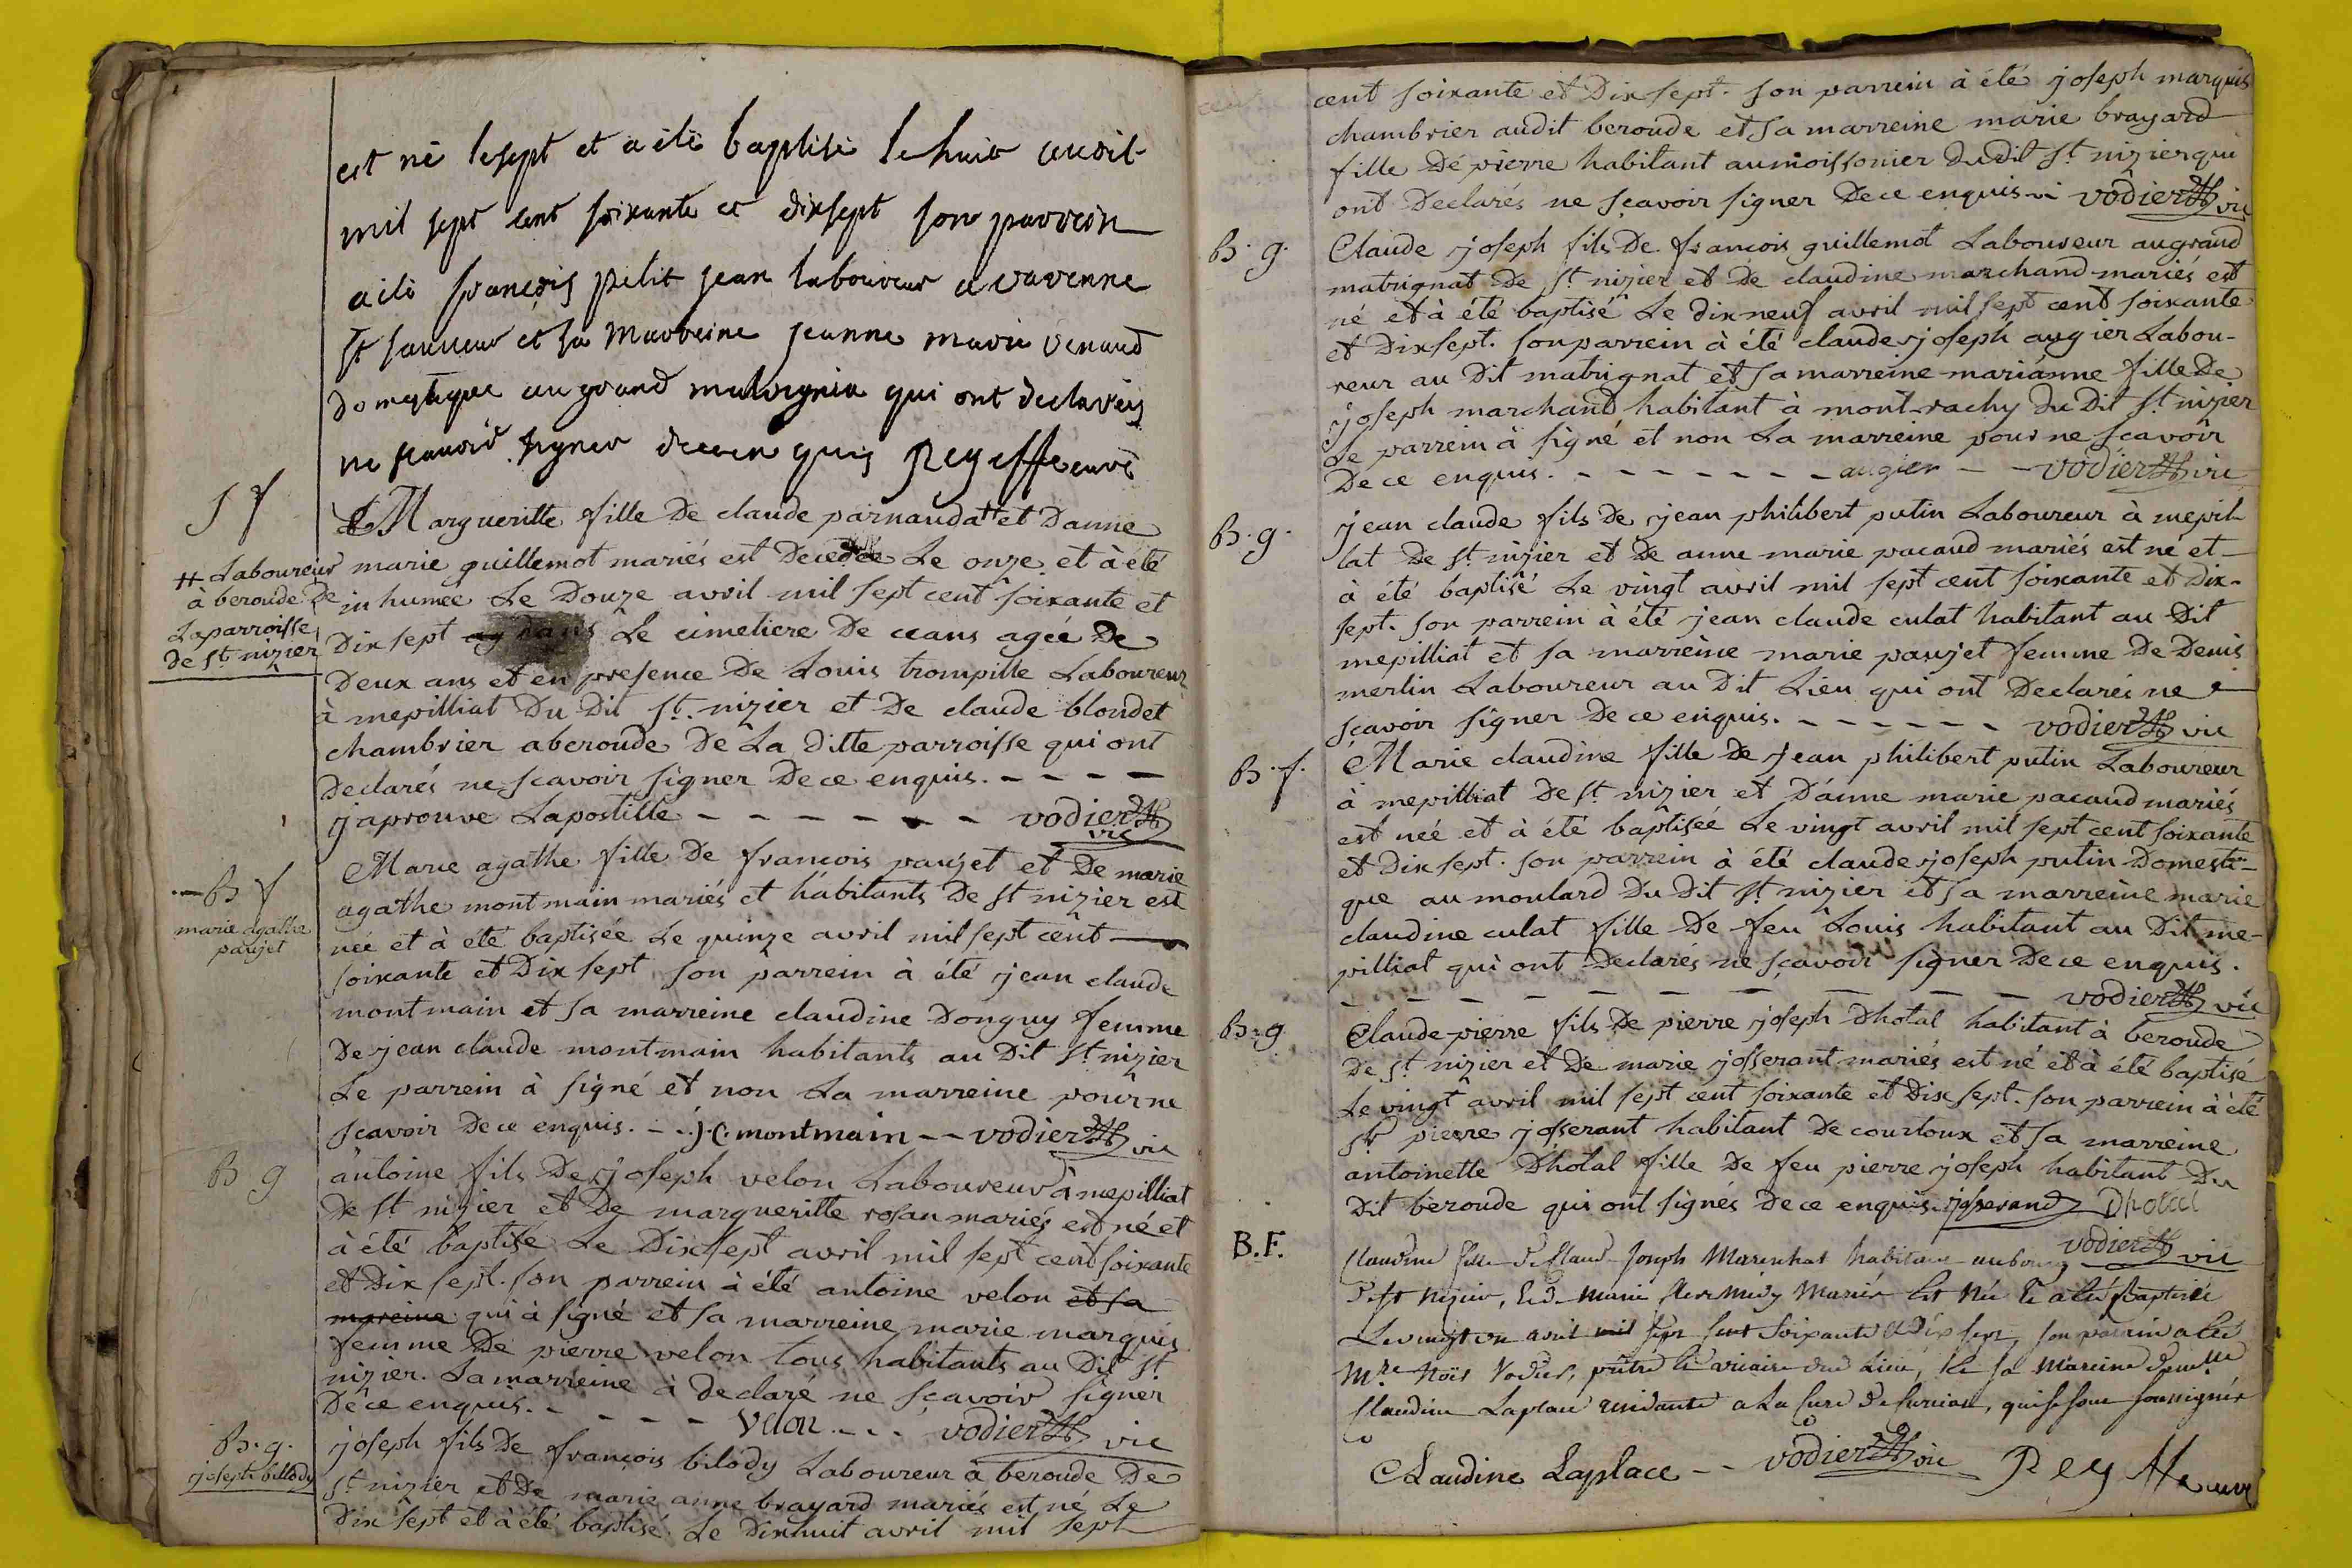 est né le sept et a été baptisé le huit avril
mil sept cent soixante et dixsept son parrein
a été françois petit jean laboureur a varenne
st sauveur et sa marreine jeanne marie venaud
domestique au grand qui ont declarés
ne scavoir signer dece enquis Rey curé
S f
Margueritte fille De claude parnauda ++ et Danne
++ Laboureur
à beroude De
Laparroisse
de St. nizier
marie guillemot mariés est Decedée Le onze et à été
inhumée Le Douze avril mil sept cent soixante et
Dix sept ag dans Le cimetiere De ceans agée De
Deux ans et en presence De Louis trompille Laboureur
à mepilliat Du Dit St. nizier et De claude blondet
chambrier aberoude De La Ditte parroisse qui ont
Declarés ne scavoir signer Dece enquis. - - - -
j'aprouve Lapostille - - - - - - - vodier
vic
B f
marie agathe
paujet
Marie agathe fille De françois paujet et De marie
agathe montmain mariés et habitants De St nizier est
née et à été baptisée Le quinze avril mil sept cent
soixante et Dix sept son parrein à été jean claude
montmain et sa marreine claudine Donguy femme
De jean claude montmain habitants au Dit St nizier
Le parrein à signé et non La marreine pour ne
scavoir Dece enquis. - j.C. montmain - - vodier vic
B g
antoine fils De joseph velon Laboureur à mepilliat
De St nizier et De margueritte rosan mariés est né et
à été baptisé Le Dixsept avril mil sept cent soixante
et Dix sept. son parrein à été antoine velon et sa
mareine qui à signé et sa marreine marie marquis
femme De pierre velon tous habitants au Dit St
nizier. La marreine à declaré ne scavoir signer
Dece enquis. - - - - velon - - - vodier vic
B. g.
joseph billody
joseph fils De françois bilody Laboureur à beroude De
St. nizier et De marie anne brayard mariés est né Le
Dix sept et à été baptisé Le Dixhuit avril mil sept
cent soixante et Dix sept. son parrein à été joseph marquis
chambrier audit beroude et sa marreine marie brayard
fille De pierre habitant aumoissonier Du Dit St. nizier qui
ont Declarés ne scavoir signer Dece enquis vodier vic
B. g.
Claude joseph fils De françois guillemot Laboureur augrand
matrignat De St. nizier et De claudine marchand mariés est
né et à été baptisé Le dixneuf avril mil sept cent soixante
et Dixsept. son parrein à été claude joseph augier Labou-
reur au Dit matrignat et sa marreine marianne fille De
joseph marchand habitant à mont-rachy Du Dit St. nizier
Le parrein à signé et non La marreine pour ne scavoir
De ce enquis. - - - - - - - augier - - vodier vic
B. g.
jean claude fils De jean philibert putin Laboureur à mepil-
lat De St. nizier et De anne marie pacaud mariés est né et
à été baptisé Le vingt avril mil sept cent soixante et Dix-
sept. son parrein à été jean claude culat habitant au Dit
mepilliat et sa marreine marie paujet femme De Denis
merlin Laboureur au Dit Lieu qui ont Declarés ne
scavoir signer De ce enquis. - - - - - - vodier vic
B. f.
Marie claudine fille De jean philibert putin Laboureur
à mepilliat De St. nizier et Danne marie pacaud mariés
est née et à été baptisée Le vingt avril mil sept cent soixante
et Dix sept. son parrein à été claude joseph putin Domesti-
que au moulard Du Dit St. nizier et sa marreine marie
claudine culat fille De feu Louis habitant au Dit me-
pilliat qui ont Declarés ne scavoir signer De ce enquis.
- - - - - - - - - - vodier vic
B. g
Claude pierre fils De pierre joseph Dhotal habitant à beroude
De St. nizier et De marie josserant mariés est né et à été baptisé
Le vingt avril mil sept cent soixante et Dix sept. son parrein à été
Sr. pierre josserant habitant De courtoux et sa marreine
antoinette Dhotal fille De feu pierre joseph habitant Du
Dit beroude qui ont signés De ce enquis. josserand Dhotal
vodier vic
B. F.
Claudine fille De Claud Joseph habitant au bourg
De St Nizier, et De Marie Mariés est Née et a été Baptisée
Le vingt un avril mil sept cent soixante et Dix sept, son parrein a été
Mre Noël Vodier, prêtre et vicaire dud Lieu, et sa Mareine demlle
Claudine Laplace residante a La Cure De, qui se sont soussignés
Claudine Laplace - - vodier vic Rey curé